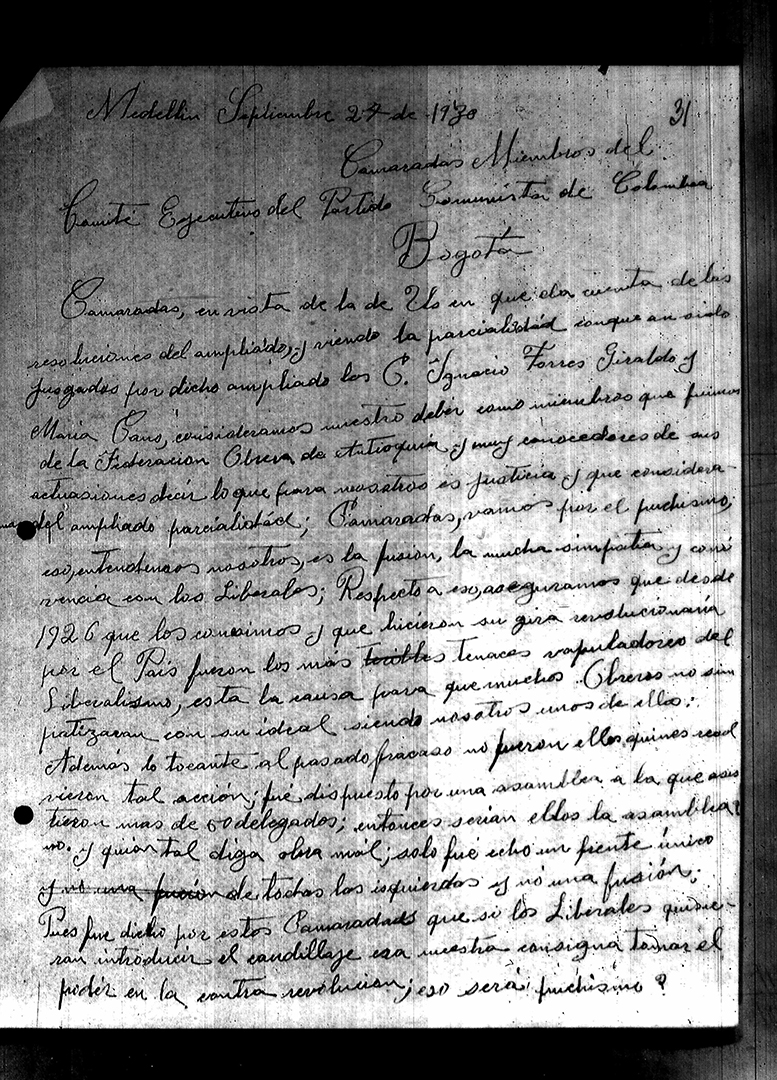 31
Medellin Septiembre 24 de 1930
Camaradas Miembros del
Comité Ejecutivo del Partido Comunista de Colombia
Bogotá
Camaradas, en vista de la de Us en que da cuenta de las
resoluciones del ampliado, y viendo la parcialidád conque an sido
jusgados por dicho ampliado los C. Ignacio Torres Giraldo y
María Cano, consideramos nuestro deber como miembros que fuimos
de la Federacion Obrera de Antioquia y muy conocedores de sus
actuasiones decir lo que para nosotros es justicia y que considera-
mos del ampliado parcialidád; Camaradas, vamos por el puchismo,
eso, entendemos nosotros, es la fusion, la mucha simpatia y convi
vencia con los Liberales; Respecto a eso, aseguramos que desde
1926 que los conosimos y que hicieron su gira revolucionaria
por el País fueron los más terribles tenaces vapuladores del
Liberalismo, esta la causa para que muchos Obreros no sim
patizaran con su ideal siendo nosotros unos de ellos;
Además lo tocante al pasado fracaso no fueron ellos quines resol
vieron tal acción; fué dispuesto por una asamblea a la que asis
tieron mas de 50 delegados; entonces serian ellos la asamblea?
no. y quien tal diga obra mal; solo fué echo un frente único
y nó una fución de todas las isquierdas y nó una fusión;
Pues fue dicho por estos Camaradas que si los Liberales quisie-
ran introducir el caudillaje era nuestra consigna tomar el
podér en la contra revolucion; eso será puchismo?